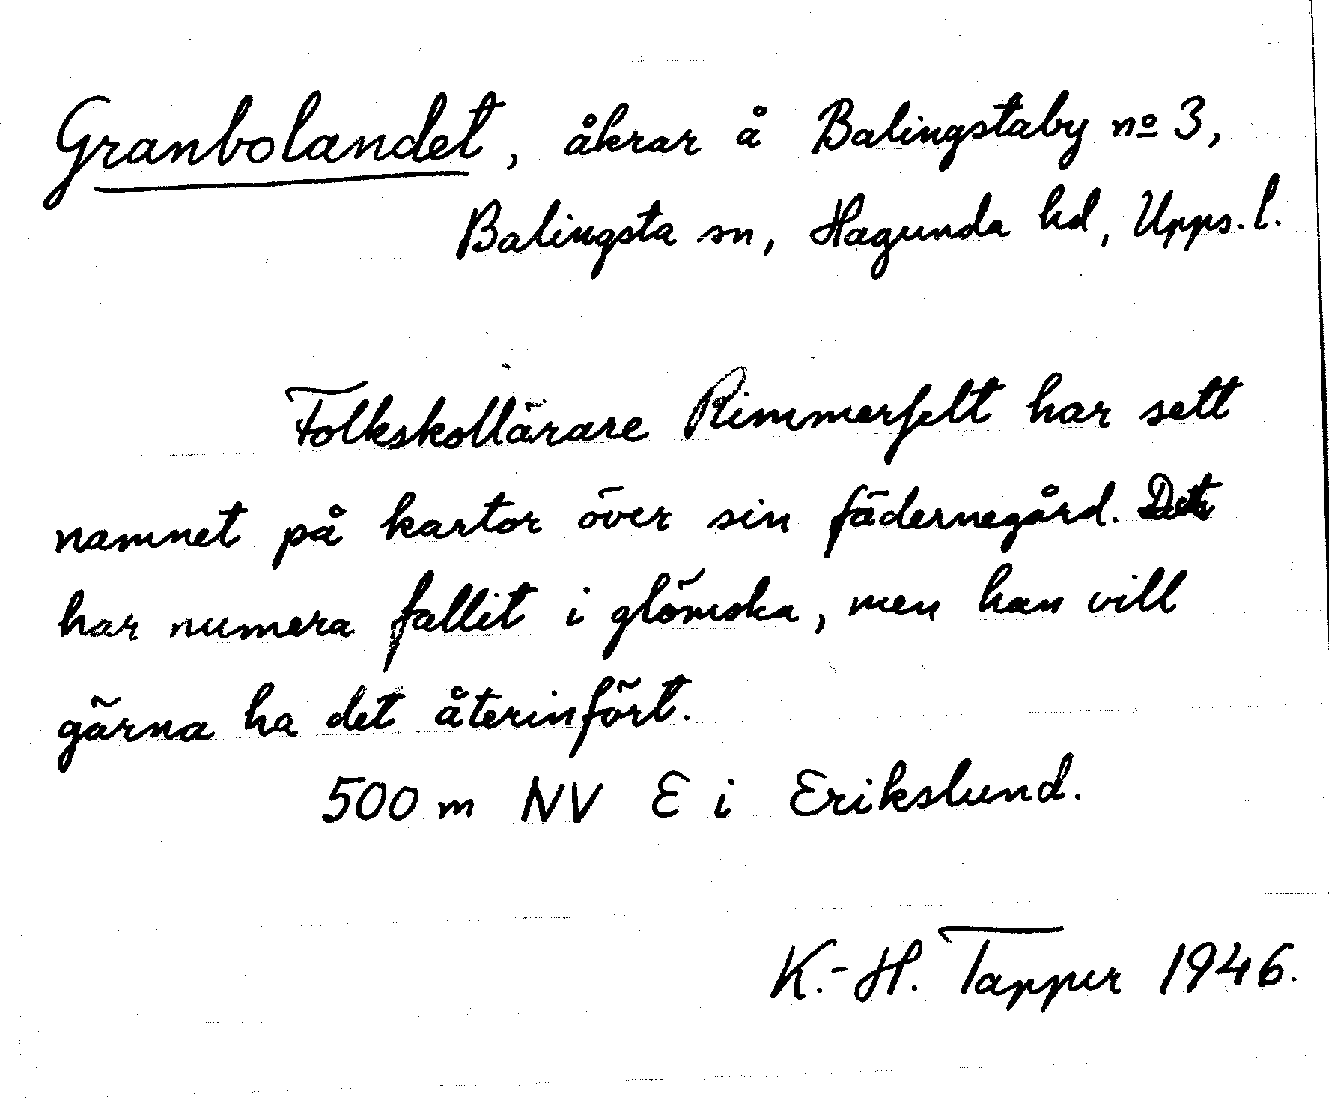 Granbolandet, åkrar å Balingstaby nº 3,
Balingsta sn, Hagunda hd, Upps. l.
Folkskollärare Rimmerfelt har sett
namnet på kartor över sin fädernegård. Det
har numera fallit i glömska, men han vill
gärna ha det återinfört.
500 m NV E i Erikslund.
K.-H. Tapper 1946.